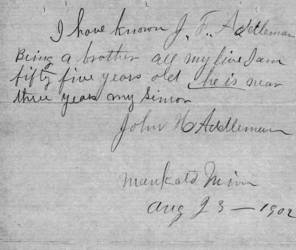 I have known J. F. Addleman
Being a brother all my live I am
fifty five years old he is near
three years my Sinor
John H Addleman
Mankato Minn
Aug 23 - 1902